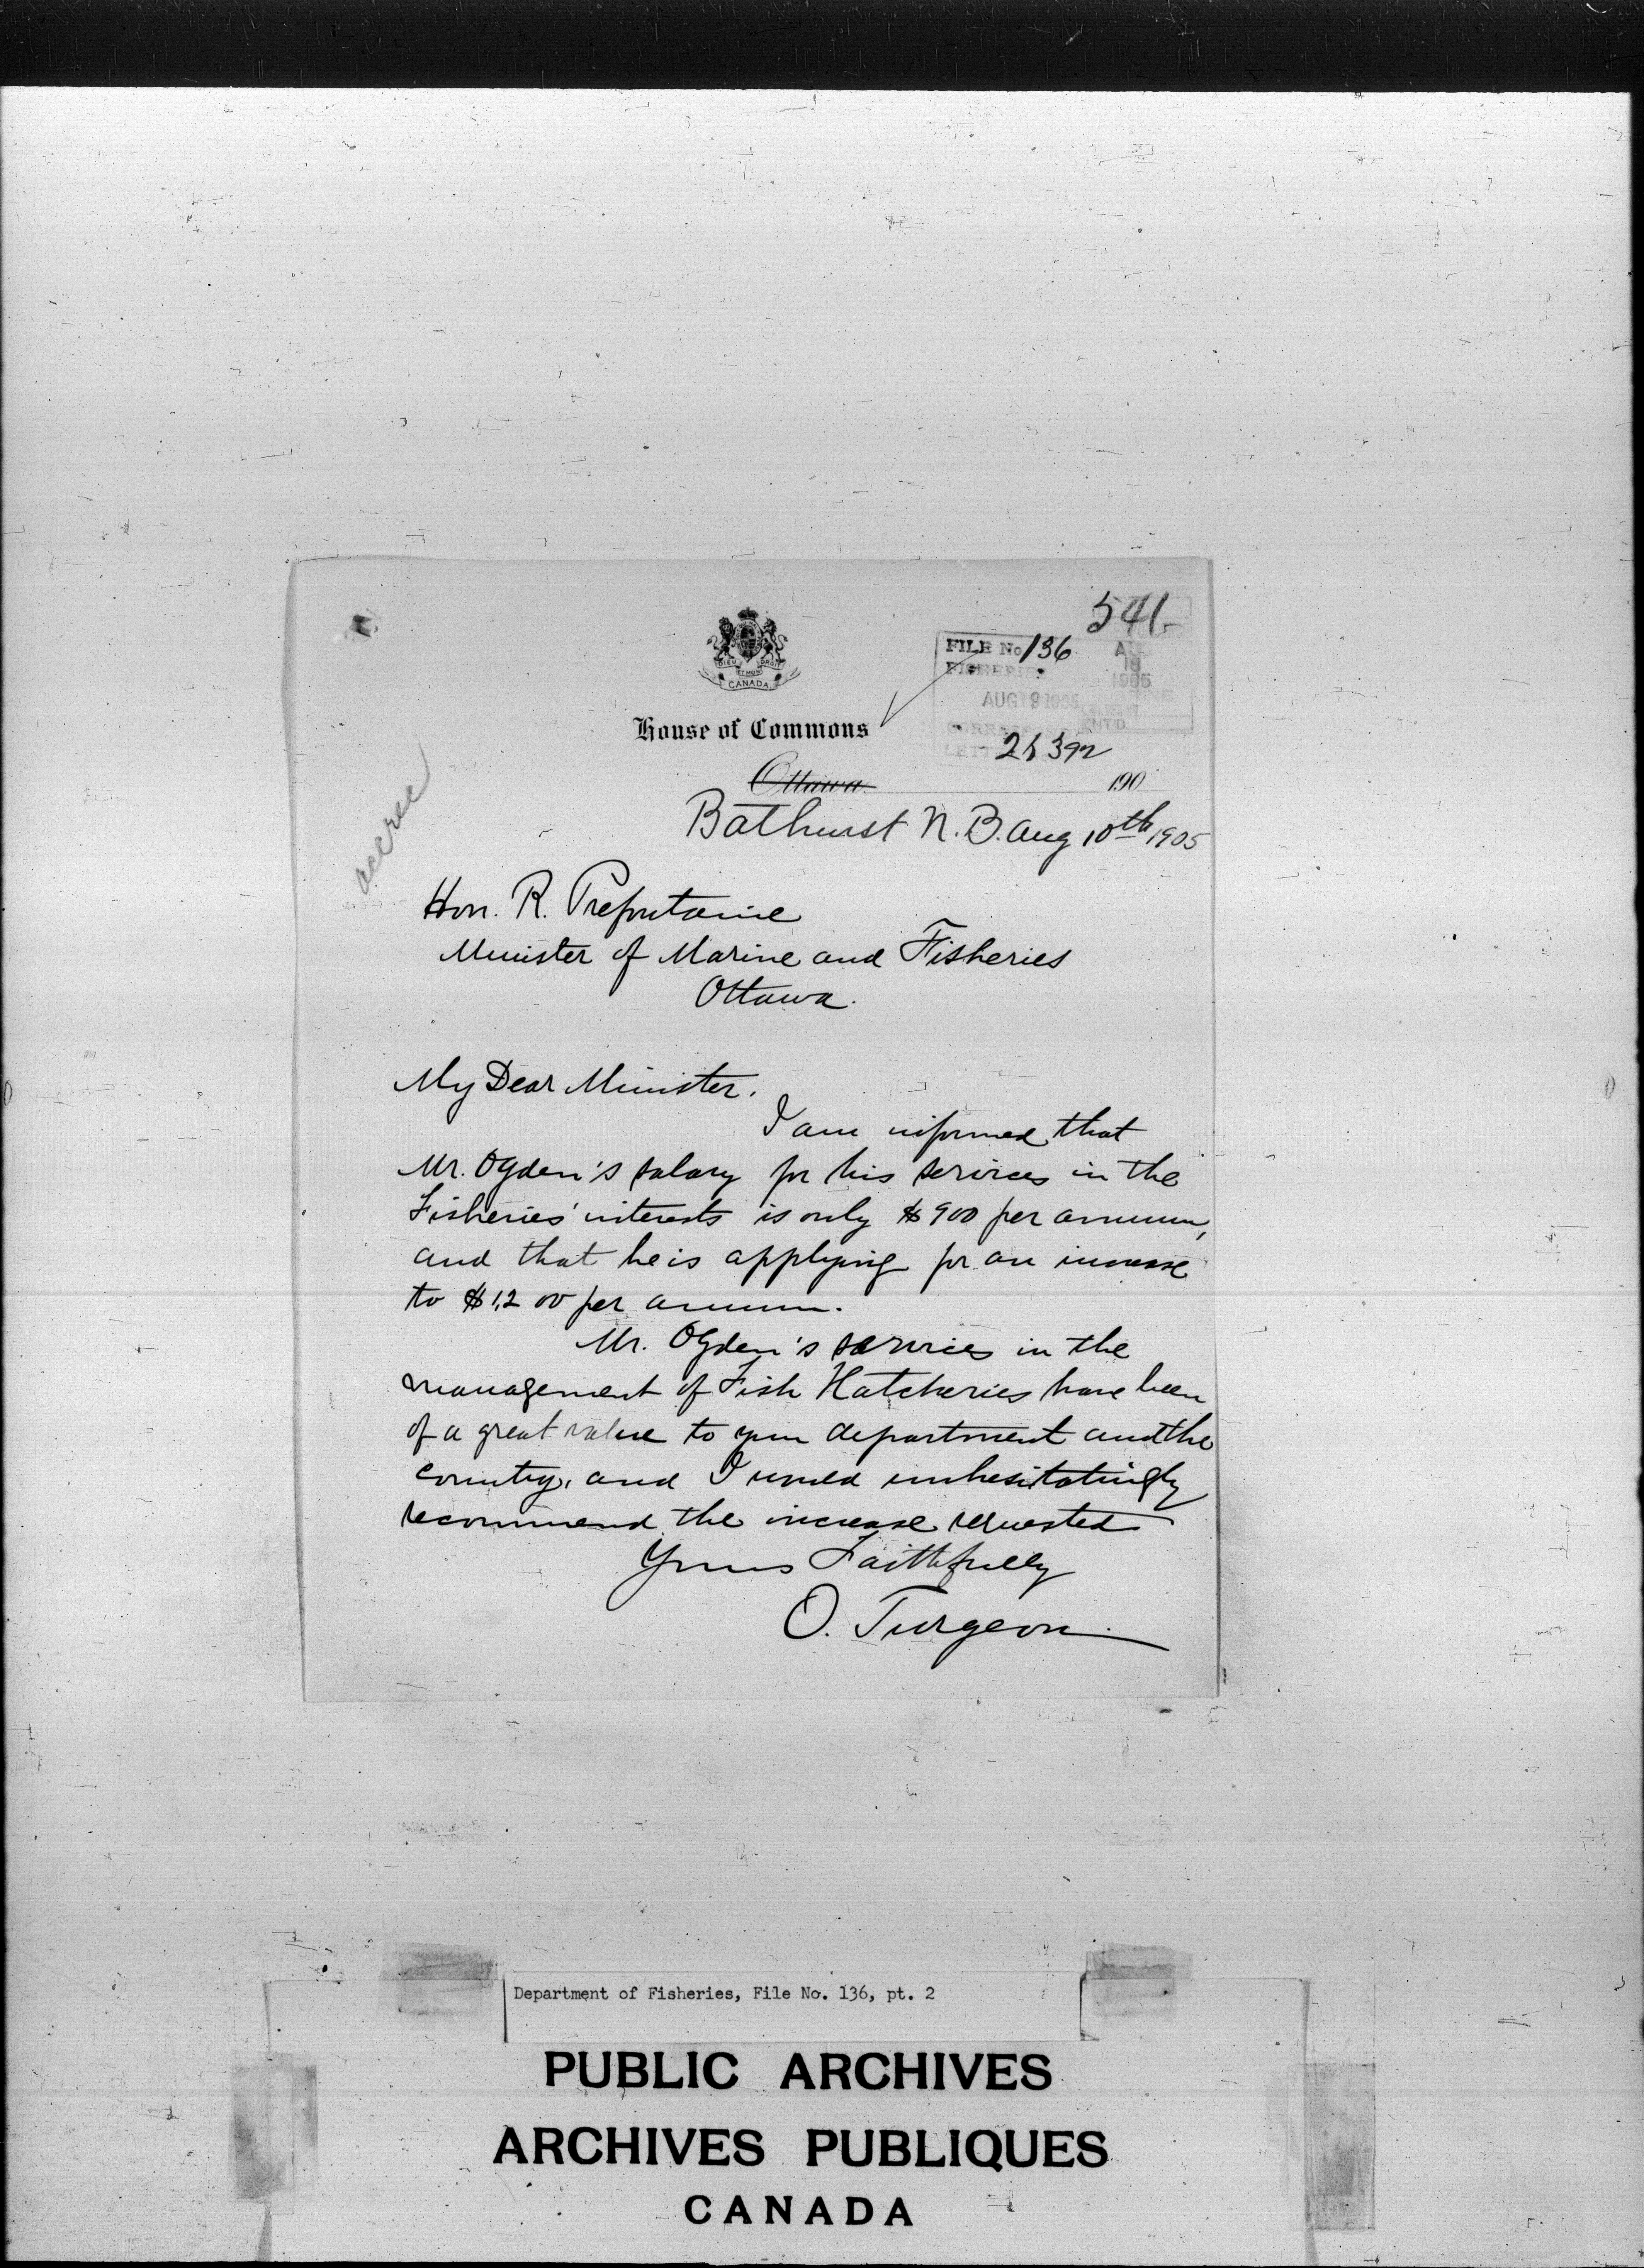 541
FILE No 136
FISHERIES
AUG 19 1905
AUG 19 1905
DIEU ET MON DROIT
CANADA
House of Commons
Ottawa 190
Bathurst N.B. Aug 10th 1905
Hon. R. Prefontaine
Minister of Marine and Fisheries
Ottawa.
My Dear Minister.
I am informed that
Mr. Ogden's salary for his services in the
Fisheries' interests is only $900 per annum,
and that he is applying for an increase
to $1,200 per annum.
Mr. Ogden's services in the
management of Fish Hatcheries have been
of a great value to your department and the
country, and I would unhesitatingly
recommend the increase requested
Yours Faithfully
O. Turgeon
Department of Fisheries, File No. 136, pt. 2
PUBLIC ARCHIVES
ARCHIVES PUBLIQUES
CANADA